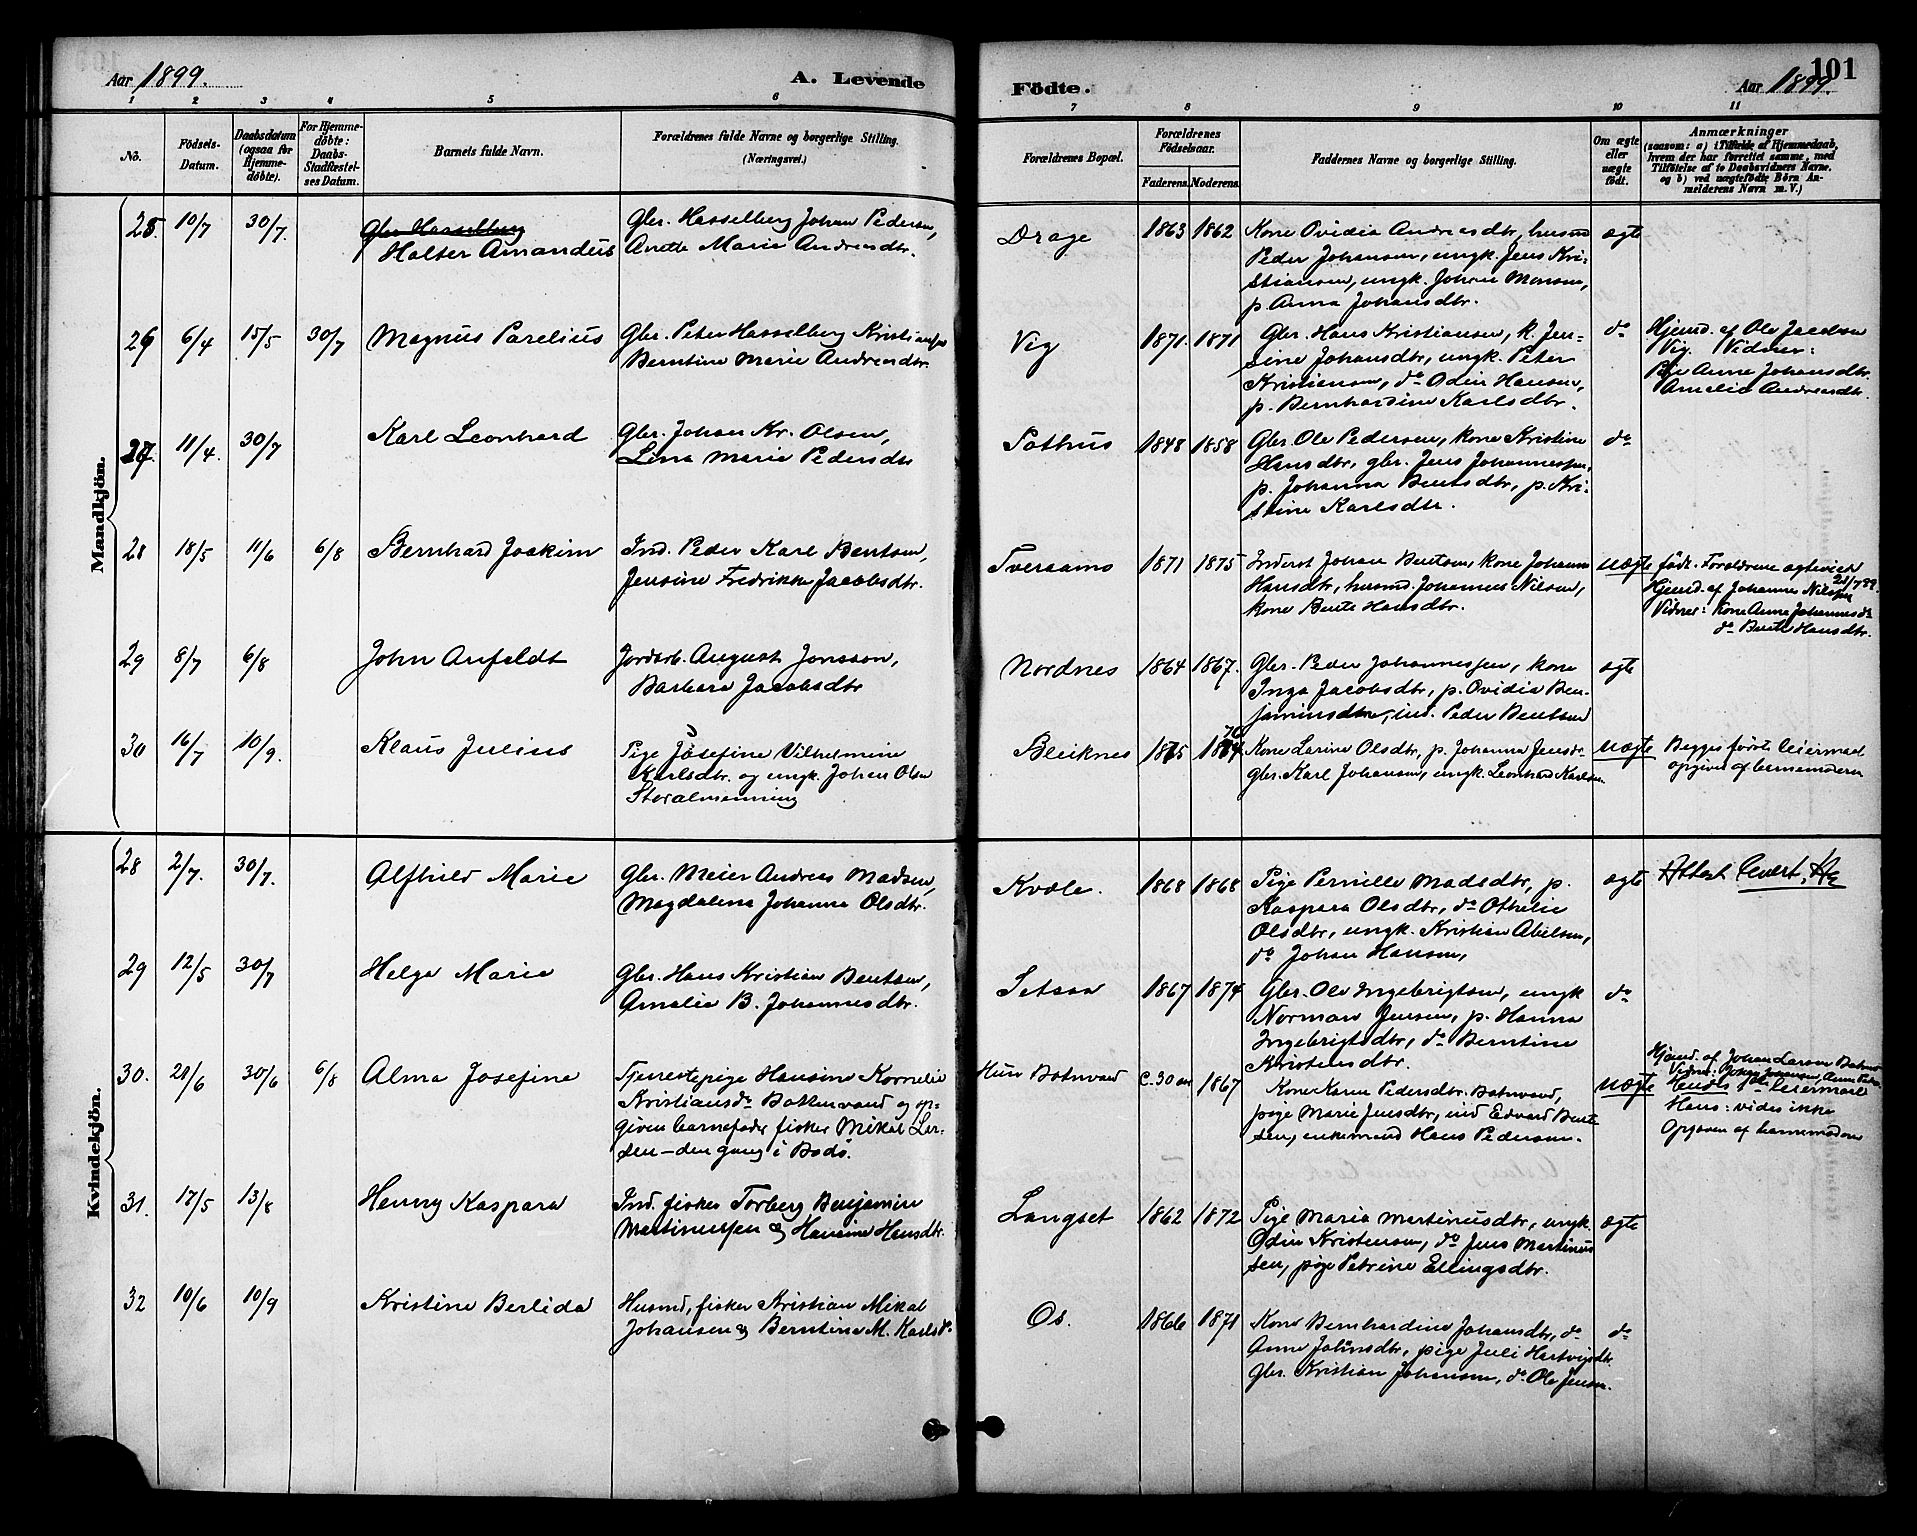 Aar 1899.
A. Levende
Födte.
Aar 1899.
101
1 2 3 4 5 6 7 8 9 10 11
No.
Födsels-Datum.
Daabsdatum (ogsaa for Hjemme-döbte).
For Hjemme-döbte: Daabs-Stadfæstel-ses Datum.
Barnets fulde Navn.
Forældrenes fulde Navne og borgerlige Stilling.
(Næringsvei.)
Forældrenes Bopæl.
Forældrenes Födselsaar.
Faderens. Moderens.
Faddernes Navne og borgerlige Stilling.
Om ægte eller uægte födt.
Anmærkninger
(saasom: a) i Tilfælde af Hjemmedaab, hvem der har forrettet samme, med Tilföielse af to Daabsvidners Navne, og b) ved uægtefödte Börn An-melderens Navn m. V.)
Mandkjön.
25. 10/7 30/7.
Gbr. Hasselberg
Halter Amandus
Gbr. Hasselberg Johan Pedersen,
Anette Marie Andreasdtr.
Drage
1863 1862
Kone Ovidia Andreasdtr, husmd
Peder Johansen, ungk. Jens Kri-
stiansen, ungk. Johan Monsen,
p. Anna Johansdtr.
ægte
26 6/4 15/5 30/7
Magnus Parelius
Gbr. Peter Hasselberg Kristiansen
Berntine Marie Andreasdtr.
Vig
1871. 1871
Gbr. Hans Kristiansen, k. Jen-
sine Johansdtr, ungk. Peter
Kristiansen, do Odin Hansen,
p. Bernhardine Karlsdtr.
do
Hjemd. af Ole Jacobsen
Vig. Vidner:
Pige Anne Johansdtr.
Amelia Andreasdtr.
27. 11/4. 30/7
Karl Leonhard
Gbr. Johan Kr. Olsen,
Lina Marie Pedersdtr
Pothus
1848 1858
Gbr. Ole Pedersen, kone Kristine
Hansdtr, gbr. Jens Johannessen,
p. Johanna Bentsdtr, p. Kri-
stine Karlsdtr.
do
28 18/5 11/6 6/8
Bernhard Joakim
Ind. Peder Karl Bentsen,
Jensine Fredrikke Jacobsdtr.
Tveraamo
1871 1875
Inderst Johan Bentsen, kone Johanna
Hansdtr, husmd. Johannes Nilsen,
kone Berte Hansdtr.
uægte
födt. Forældrene ægteviet 28/7 99.
Hjemd. af Johannes Nilssen
Vidner: Kone Anne Johannesdtr
do Berte Hansdtr.
29 8/7 6/8
John Anfeldt
Jordarb. August Jonsson,
Barbara Jacobsdtr
Nordnes
1864 1867.
Gbr. Peder Johannessen, kone
Inga Jacobsdtr, p. Ovidia Ben-
jaminsdtr, ind. Peder Bentsen
ægte
30 16/7 10/9.
Klaus Julius
Pige Josefine Vilhelmine
Karlsdtr. og ungk. Johan Olsen
Storalmenning
Bleiknes
1875 1874 76
Kone Larine Olsdtr, p. Johanna Jensdtr
gbr. Karl Johansen, ungk. Leonhard Karlsen
uægte
Begges första leiermaal
opgivet af barnemoderen
Kvindekjön.
28 2/7. 30/7.
Alfhild Marie
Gbr. Meier Andreas Madsen,
Magdalena Johanna Olsdtr.
Kvæle.
1868 1868
Pige Pernille Madsdtr, p.
Kaspara Olsdtr, do Othelie
Olsdtr, ungk. Kristian Abelsen,
do Johan Hansen,
ægte
Attest
29 12/5 30/7
Helga Marie
Gbr. Hans Kristian Bentsen,
Amalie B. Johannesdtr.
Setsaa
1867 1874
Gbr. Ole Ingebrigtsen, ungk
Normann Jensen, p. Hanna
Ingebrigtsdtr, do Berntine
Kristensdtr.
do
30. 21/6 30/6 6/8
Alma Josefine
Tjenestepige Hansine Kornelia
Kristiansdtr Botnvand og op-
given barnefader fisker Mikal Lar-
sen - den gang i Bodø.
Huse Botnvand
c. 30 aar 1867
Kone Karen Pedersdtr. Botnvand,
pige Marie Jensdtr, ind Edvard Bent-
sen, enkemand Hans Pedersen.
uægte
Hjemd. af Johan Larsen Botnvd
Vidner: Johan Johansen, Anne Peders.
Hendes 1ste leiermaal
Hans: vides ikke
Opgaven af barnemoderen
31. 17/5 13/8
Henny Kaspara
Ind. fisker Torberg Benjamin
Martinussen og Hansine Hansdtr.
Langset
1862 1872
Pige Maria Martinusdtr, ungk.
Odin Kristensen, do Jens Martinus
sen, pige Petrine Ellingsdtr.
ægte
32 10/6 10/9
Kristine Berlida
Husmd, fisker Kristian Mikal
Johansen og Berntine M. Karlsdr
Os.
1866 1871
Kone Bernhardine Johansdtr, do
Anne Johansdtr, pige Juli Hartvigsdtr.
Gbr. Kristian Johansen, do Ole Jensen.
do